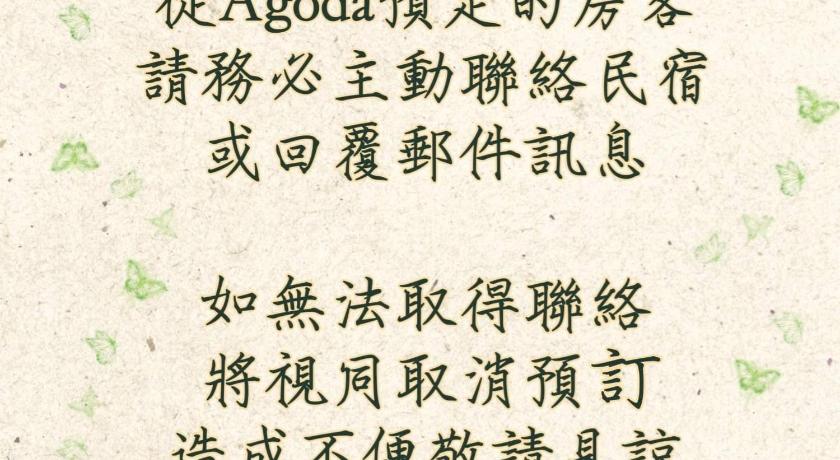 從Agoda預定的房客
請務必主動聯絡民宿
或回覆郵件訊息
如無法取得聯絡
將視同取消預訂
造成不便敬請見諒